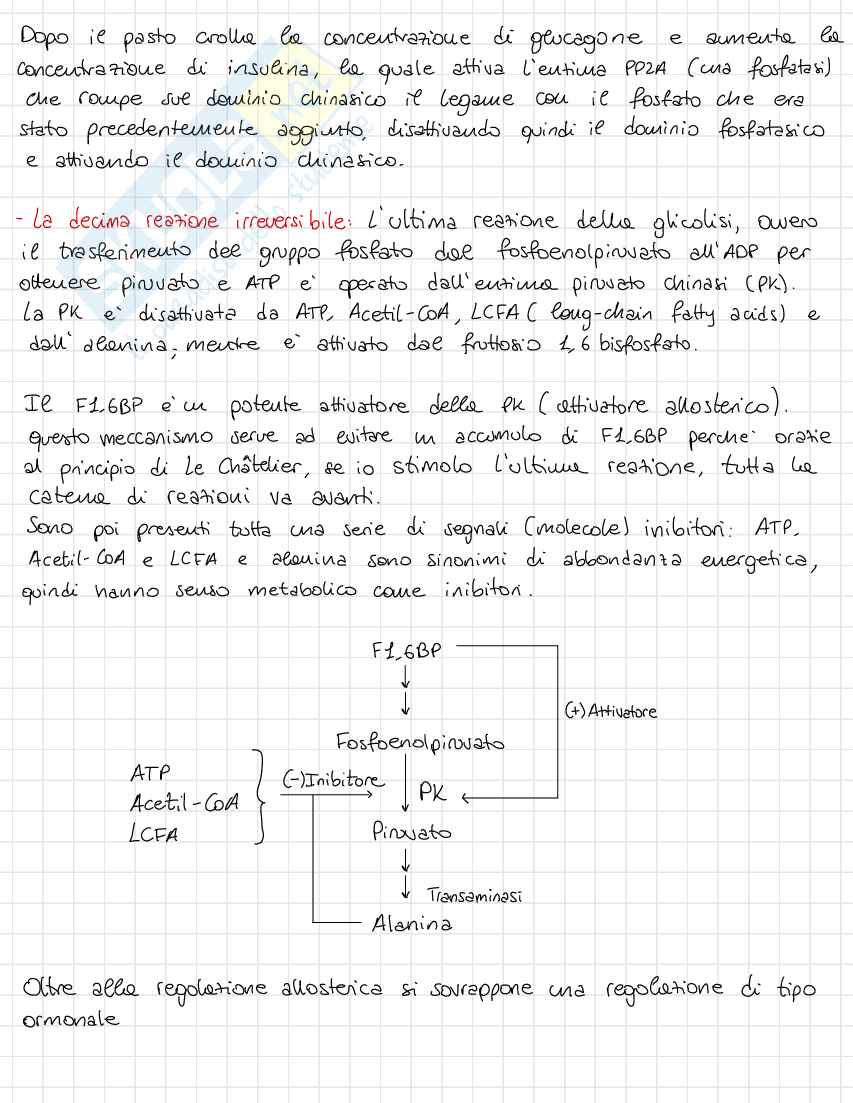 Dopo il pasto crolla la concentrazione di glucagone e aumenta la
concentrazione di insulina, la quale attiva l'enzima PP2A (una fosfatasi)
che rompe sul dominio chinasico il legame con il fosfato che era
stato precedentemente aggiunto, disattivando quindi il dominio fosfatasico
e attivando il dominio chinasico.
- La decima reazione irreversibile: L'ultima reazione della glicolisi, ovvero
il trasferimento del gruppo fosfato dal fosfoenolpiruvato all'ADP per
ottenere piruvato e ATP e' operato dall'enzima piruvato chinasi (PK).
La PK e' disattivata da ATP, Acetil-CoA, LCFA ( long-chain fatty acids) e
dall' alanina, mentre e' attivato dal fruttosio 1,6 bisfosfato.
Il F1,6BP e' un potente attivatore della PK ( attivatore allosterico).
questo meccanismo serve ad evitare un accumulo di F1,6BP perche' grazie
al principio di Le Châtelier, se io stimolo l'ultima reazione, tutta la
catena di reazioni va avanti.
Sono poi presenti tutta una serie di segnali (molecole) inibitori: ATP,
Acetil-CoA e LCFA e alanina sono sinonimi di abbondanza energetica,
quindi hanno senso metabolico come inibitori.
F1,6BP
(+) Attivatore
Fosfoenolpiruvato
ATP
(-) Inibitore
Acetil-CoA
PK
LCFA
Piruvato
Transaminasi
Alanina
Oltre alla regolazione allosterica si sovrappone una regolazione di tipo
ormonale